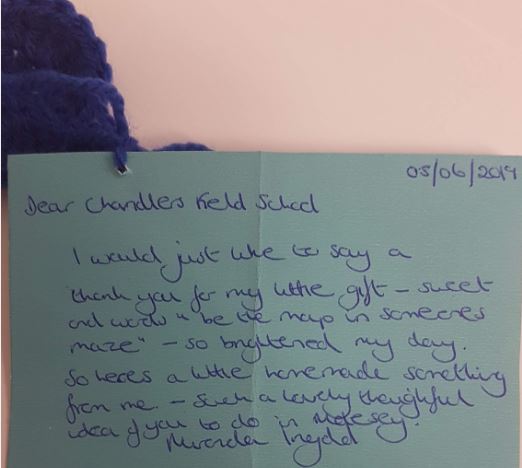 05/06/2019
Dear Chandlers Field School
I would just like to say a
thank you for my little gift - sweet
and words "be the map in someones
maze" - so brightened my day.
So heres a little homemade something
from me. - Such a lovely thoughtful
idea of you to do in Molesey.